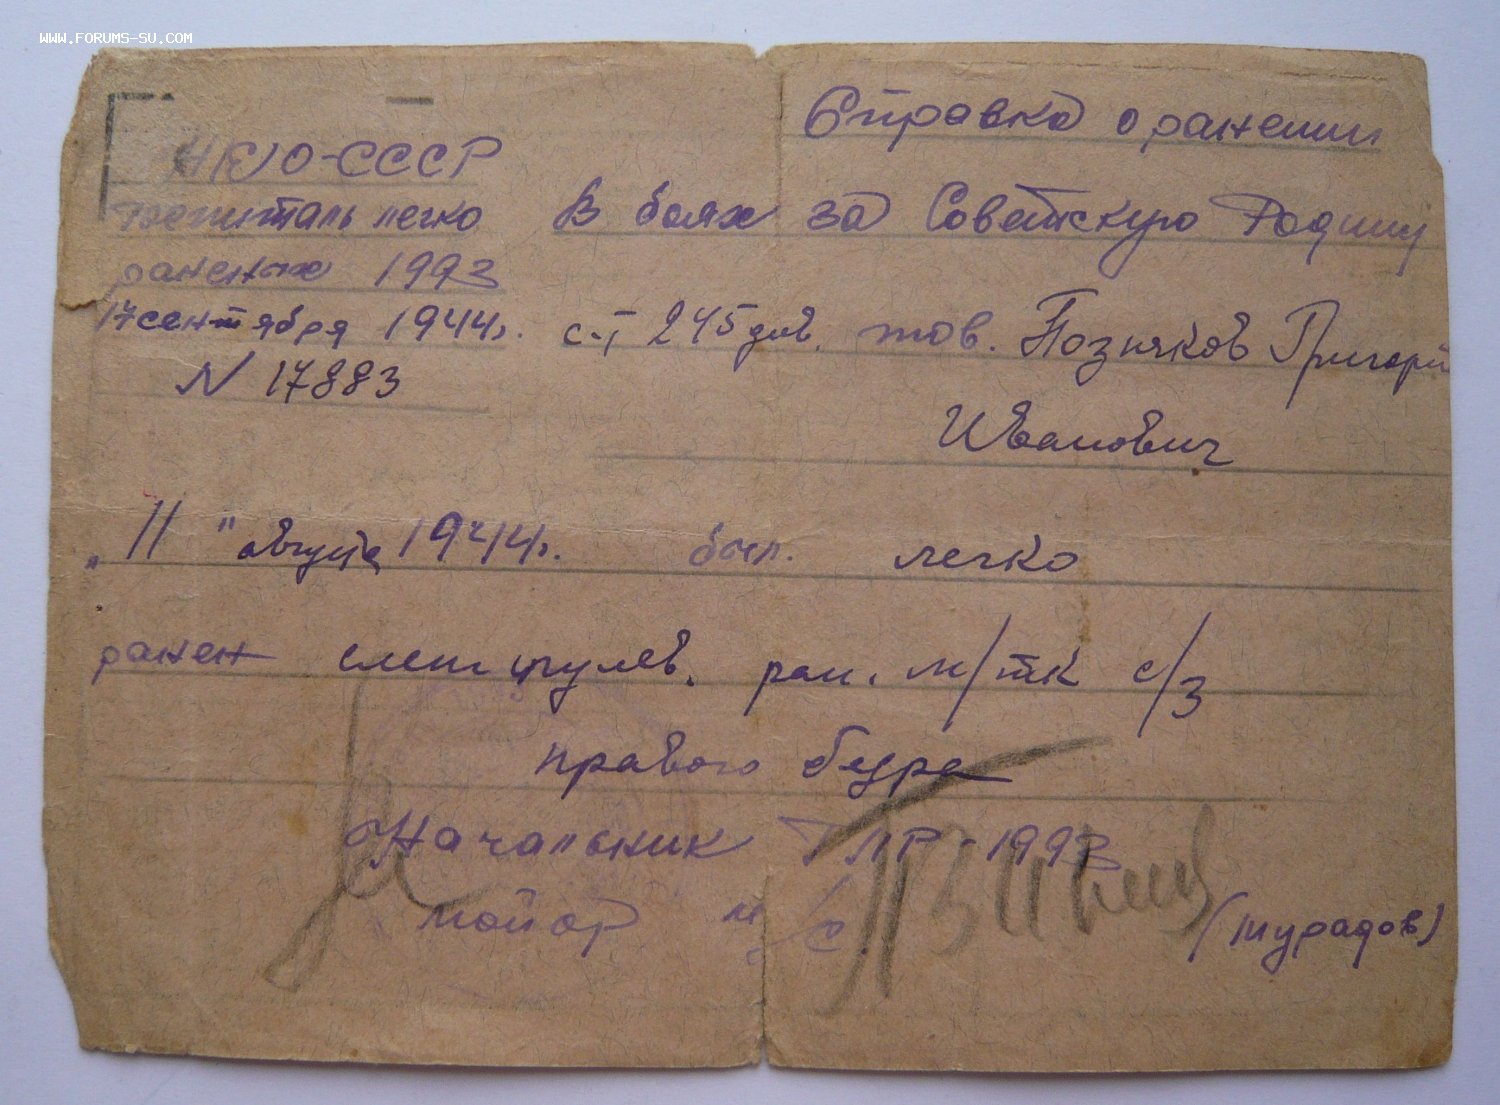 WWW.FORUMS-SU.COM
Справка о ранении
НКО-СССР
госпиталь легко
раненых 1993
17 сентября 1944г.
N 17883
В боях за Советскую Родину
с-т 245 див. тов. Позняков Григорий
Иванович
"11" августа 1944г. был. легко
ранен слеп пулев. ран. м/тк с/з
правого бедра
Начальник ГЛР-1993
майор м/с. (Мурадов)